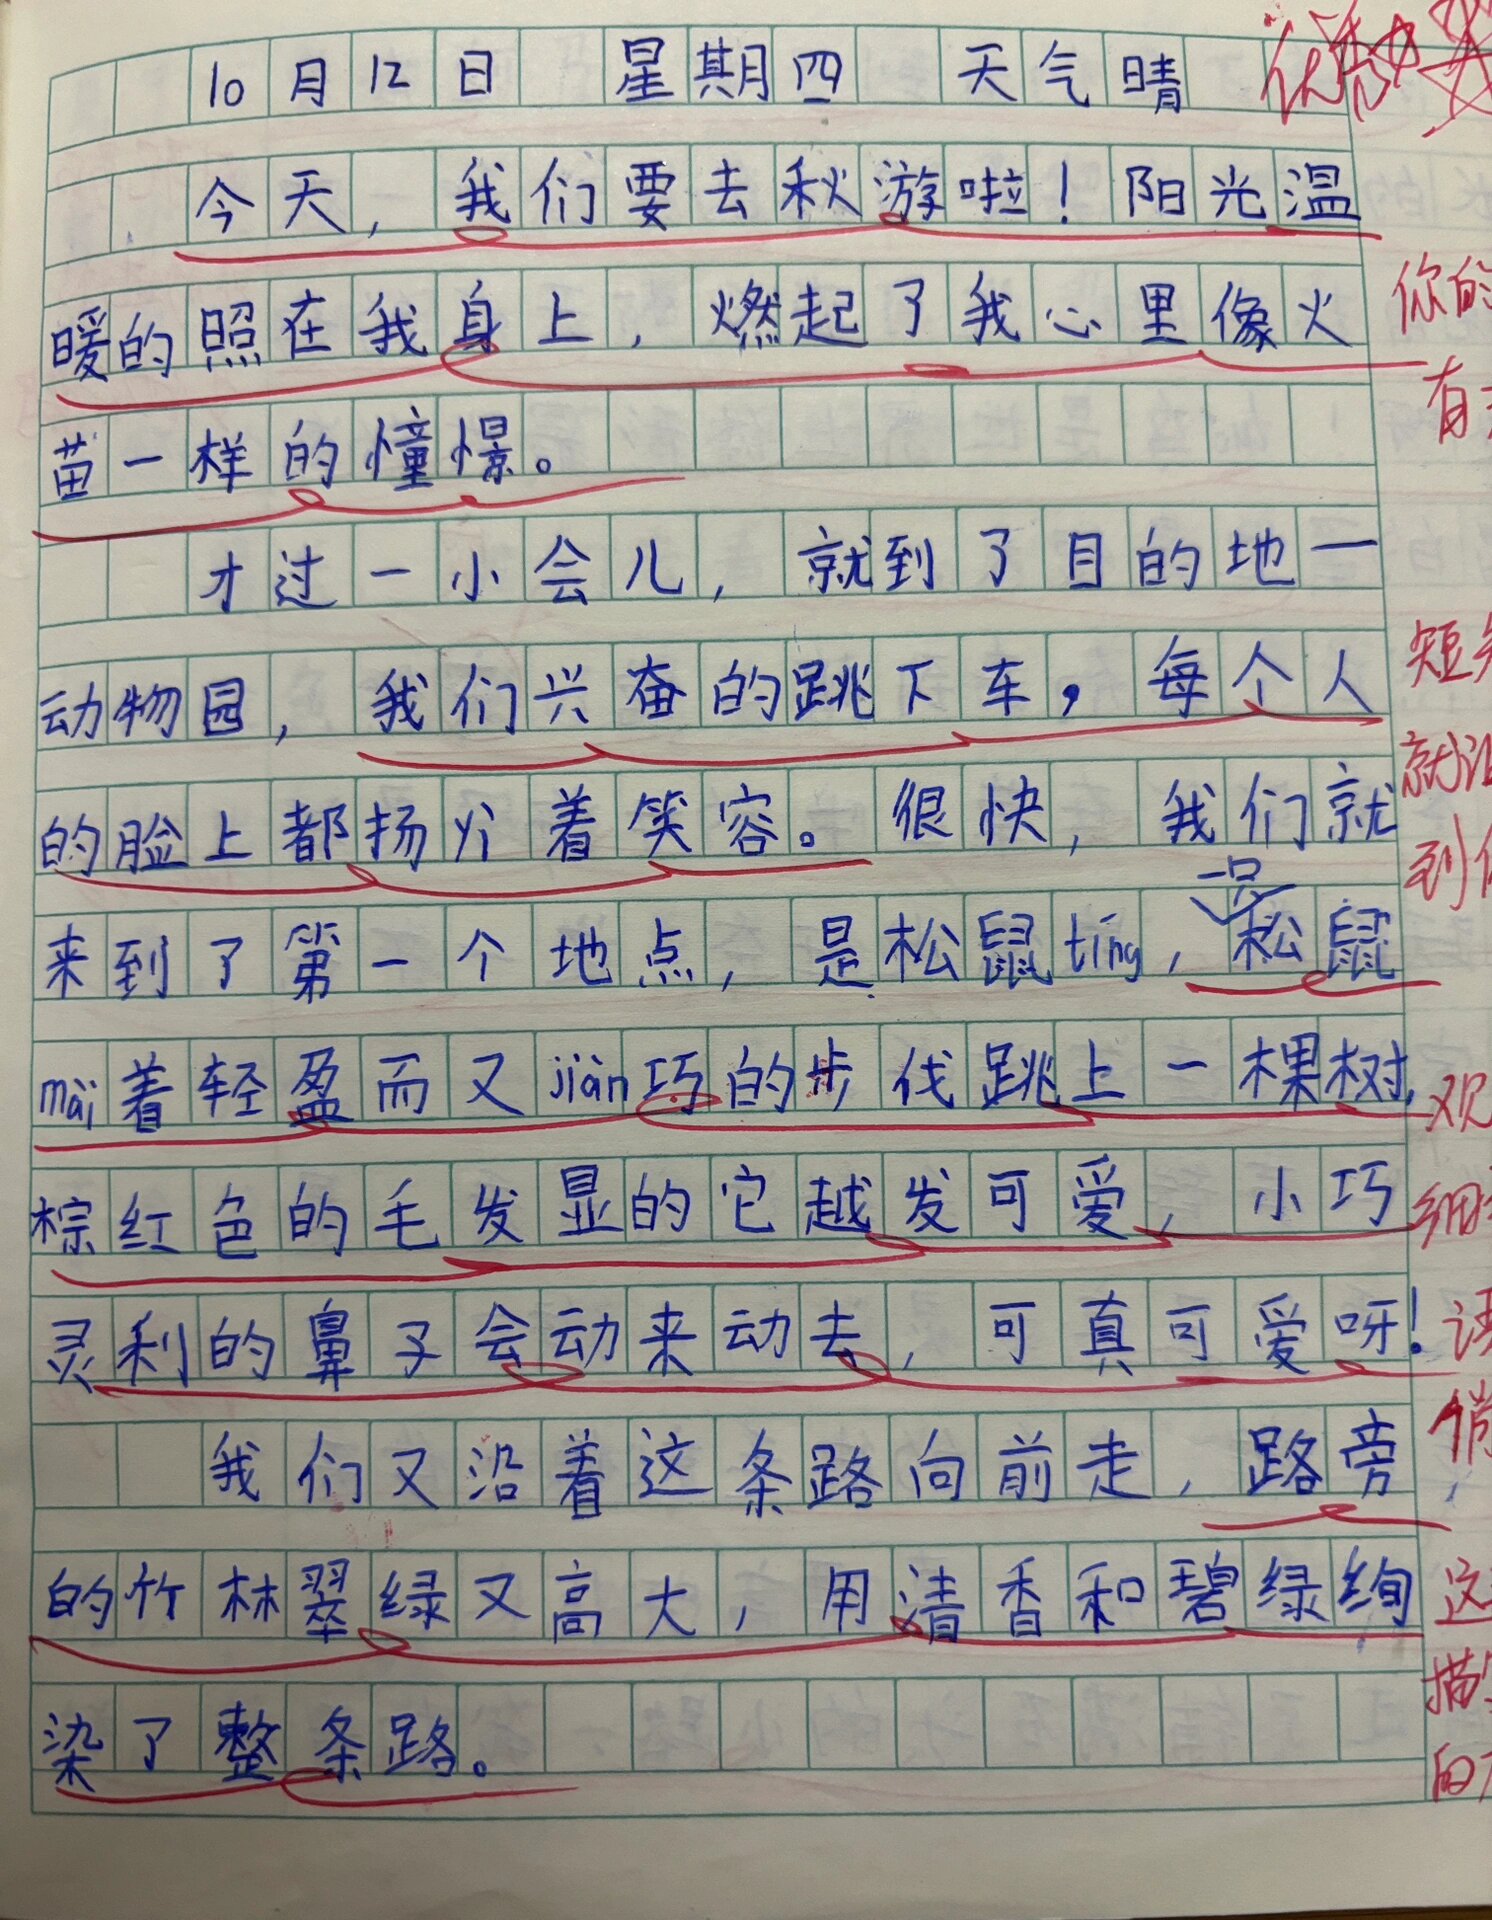 10月12日 星期四 天气晴 优秀
今天，我们要去秋游啦！阳光温
暖的照在我身上，燃起了我心里像火 你的
苗一样的憧憬。 有
才过一小会儿，就到了目的地一
动物园，我们兴奋的跳下车，每个人 短
的脸上都扬着笑容。很快，我们就 就
一只 到
来到了第一个地点，是松鼠tíng，松鼠
mài着轻盈而又jiàn巧的步伐跳上一棵树， 观
棕红色的毛发显的它越发可爱，小巧 细
灵利的鼻子会动来动去，可真可爱呀！
我们又沿着这条路向前走，路旁
的竹林翠绿又高大，用清香和碧绿绚 这
染了整条路。 描
的